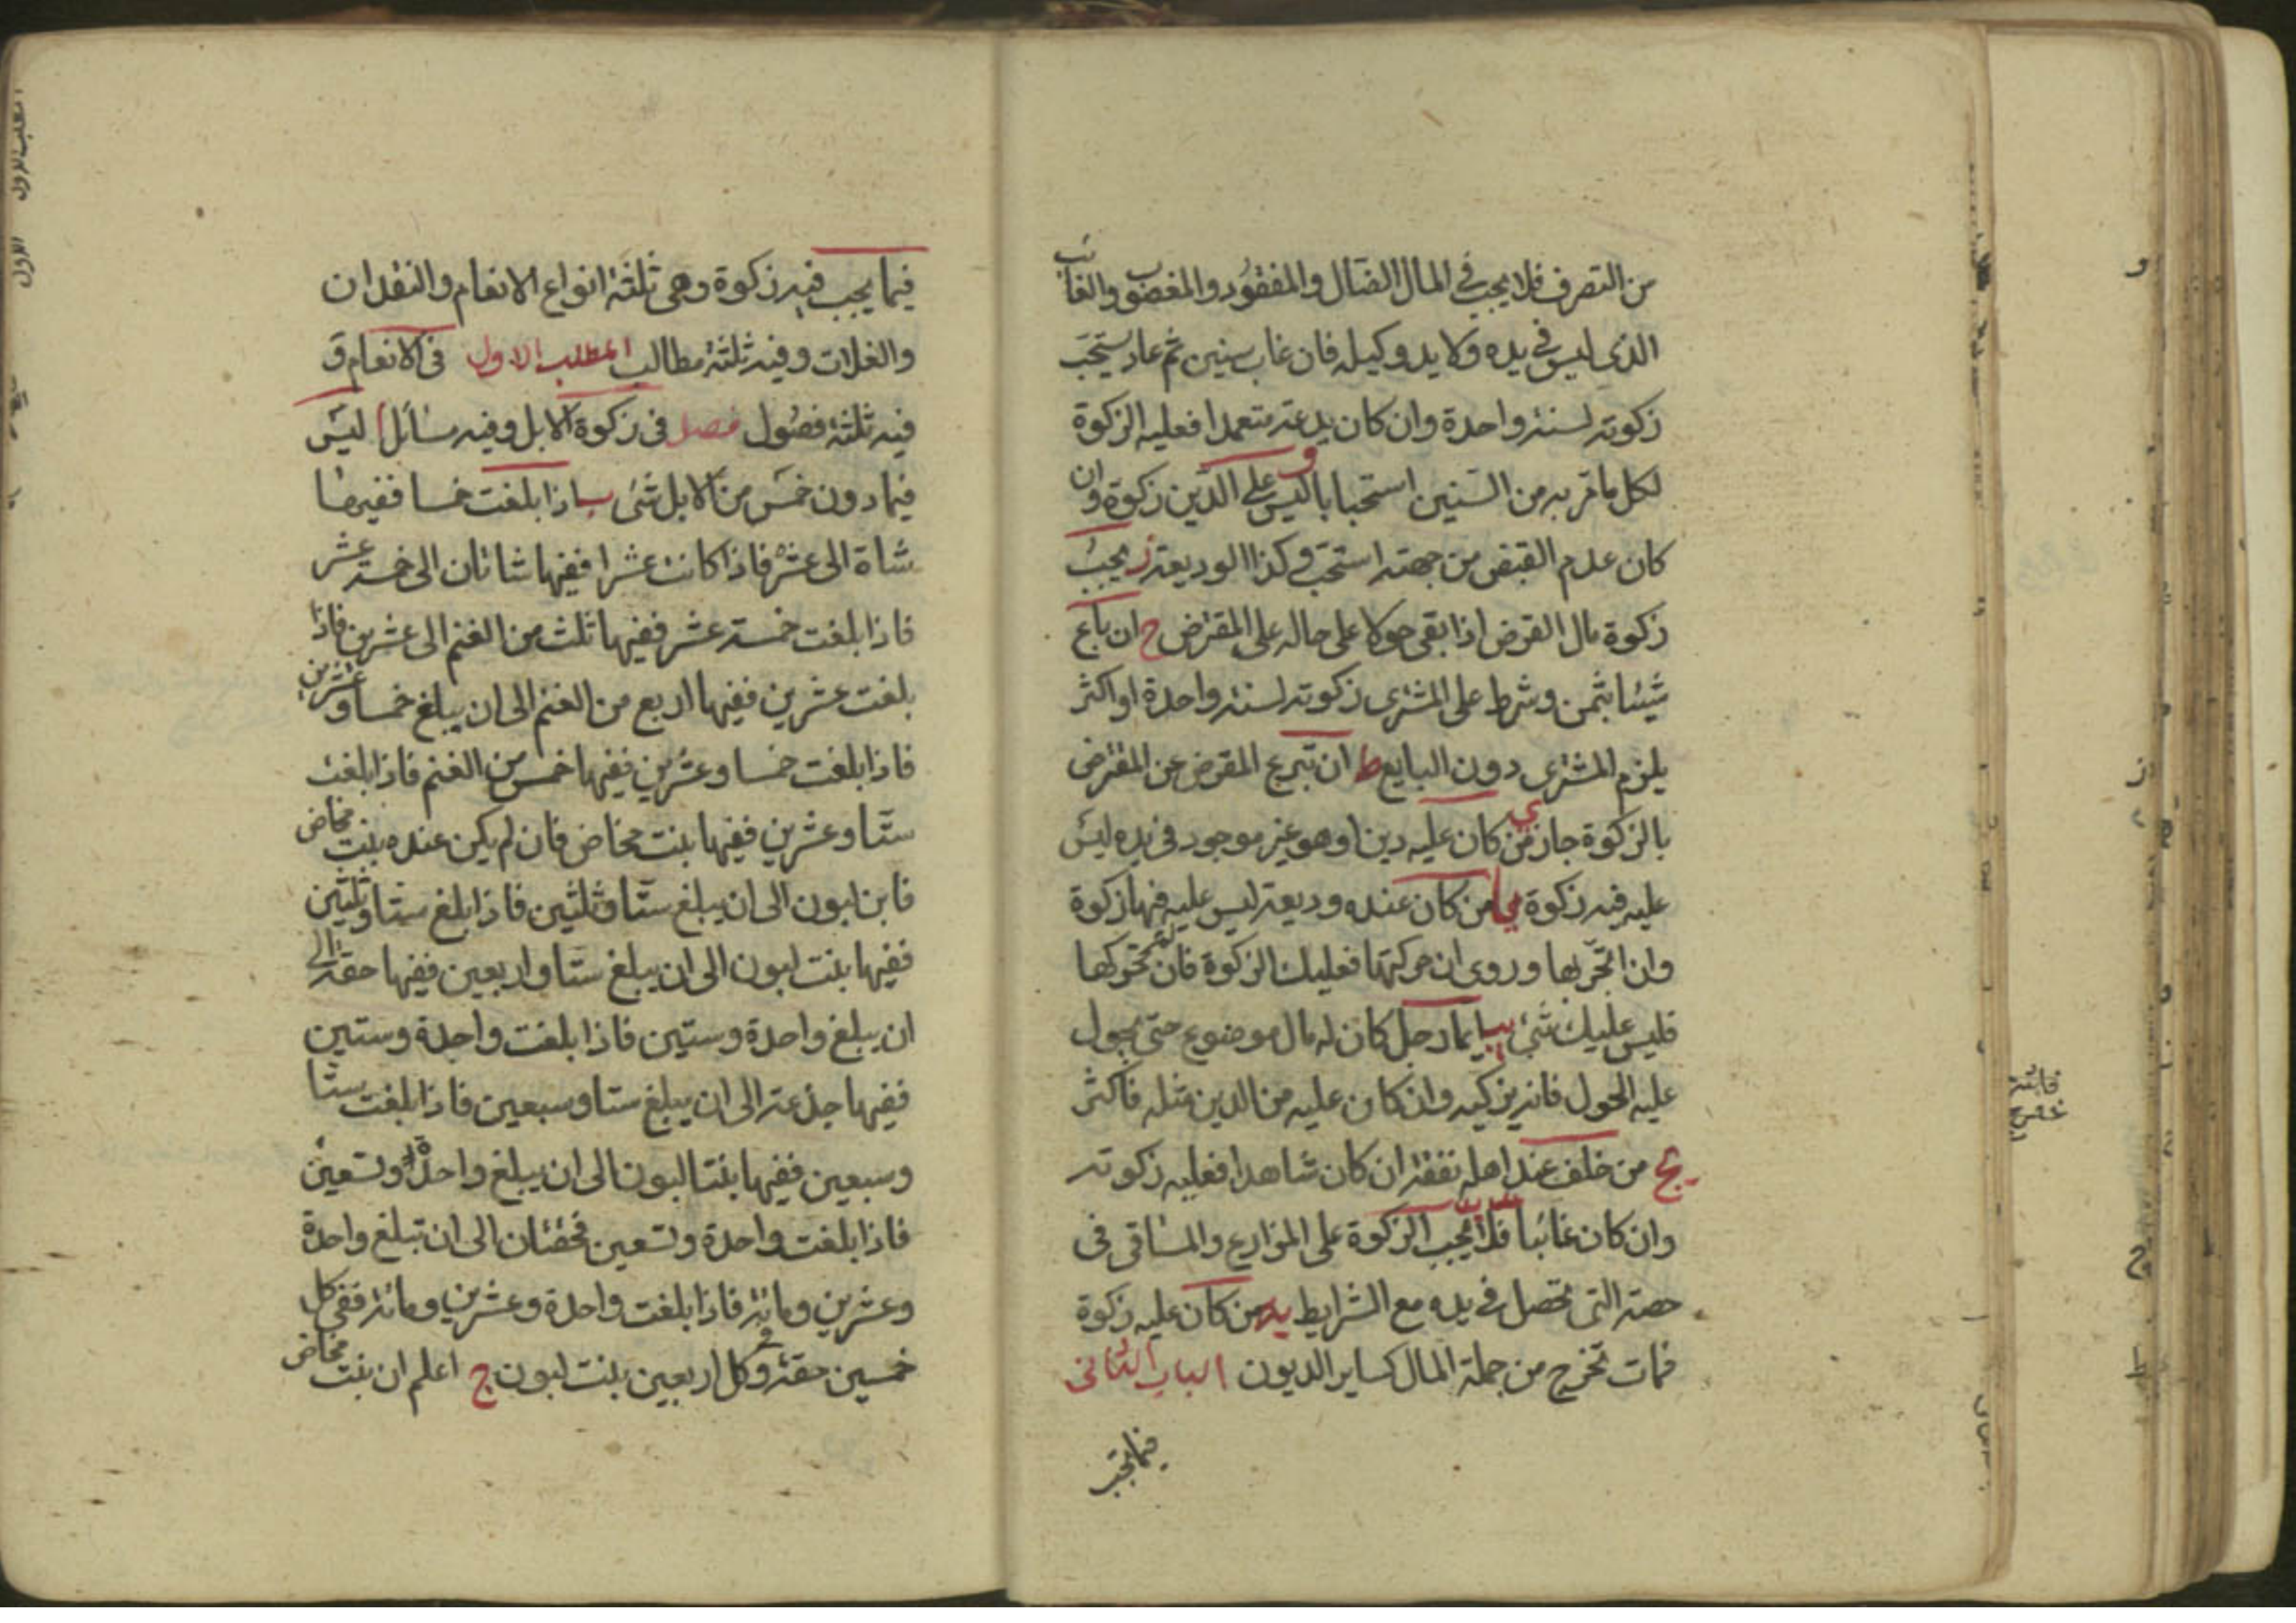 من التصرف فلا يجب في المال الضال والمفقود والمغصوب والغائب
الذى ليس في يده ولا يد وكيله فان غاب سنين ثم عاد يستحب
زكوته لسنة واحدة وان كان يدعه متعمدا فعليه الزكوة
لكل ما مر به من السنين استحبابا و ليس على الدين زكوة وان
كان عدم القبض من جهته استحب وكذا الوديعة ز يجب
زكوة مال القرض اذا بقى حولا على حاله على المقترض ح ان باع
شيئا بثمن وشرط على المشترى زكوته لسنة واحدة او اكثر
يلزم المشترى دون البايع ط ان تبرع المقرض عن المقترض
بالزكوة جاز ى من كان عليه دين او هو غير موجود في يده ليس
عليه فيه زكوة يا من كان عنده وديعة ليس عليه فيها زكوة
وان اتجر بها وروى ان حركتها فعليك الزكوة فان لم تحركها
فليس عليك شئ يب ايما رجل كان له مال موضوع حتى يحول
عليه الحول فانه يزكيه وان كان عليه من الدين مثله فاكثر
يج من خلف عند اهله نفقة ان كان شاهدا فعليه زكوته
وان كان غائبا فلا يجب الزكوة على المزارع والمساقى فى
حصته التى تحصل في يده مع الشرايط يه من كان عليه زكوة
فمات تخرج من جملة المال كساير الديون الباب الثانى
فيما يجب
فيما يجب فيه زكوة وهى ثلثة انواع الانعام والنقدان
والغلات وفيه ثلثة مطالب المطلب الاول فى الانعام و
فيه ثلثة فصول فصل فى زكوة الابل وفيه مسائل ا ليس
فيما دون خمس من الابل شئ ب اذا بلغت خمسا ففيها
شاة الى عشر فاذا كانت عشرا ففيها شاتان الى خمسة عشر
فاذا بلغت خمسة عشر ففيها ثلث من الغنم الى عشرين فاذا
بلغت عشرين ففيها اربع من الغنم الى ان يبلغ خمسا وعشرين
فاذا بلغت خمسا وعشرين ففيها خمس من الغنم فاذا بلغت
ستا وعشرين ففيها بنت مخاض فان لم يكن عنده بنت مخاض
فابن لبون الى ان يبلغ ستا وثلثين فاذا بلغ ستا وثلثين
ففيها بنت لبون الى ان يبلغ ستا واربعين ففيها حقة الى
ان يبلغ واحدة وستين فاذا بلغت واحدة وستين
ففيها جذعة الى ان يبلغ ستا وسبعين فاذا بلغت ستا
وسبعين ففيها بنتا لبون الى ان يبلغ واحدة وتسعين
فاذا بلغت واحدة وتسعين فحقتان الى ان تبلغ واحدة
وعشرين ومائة فاذا بلغت واحدة وعشرين ومائة ففى كل
خمسين حقة وفى كل اربعين بنت لبون ج اعلم ان بنت مخاض